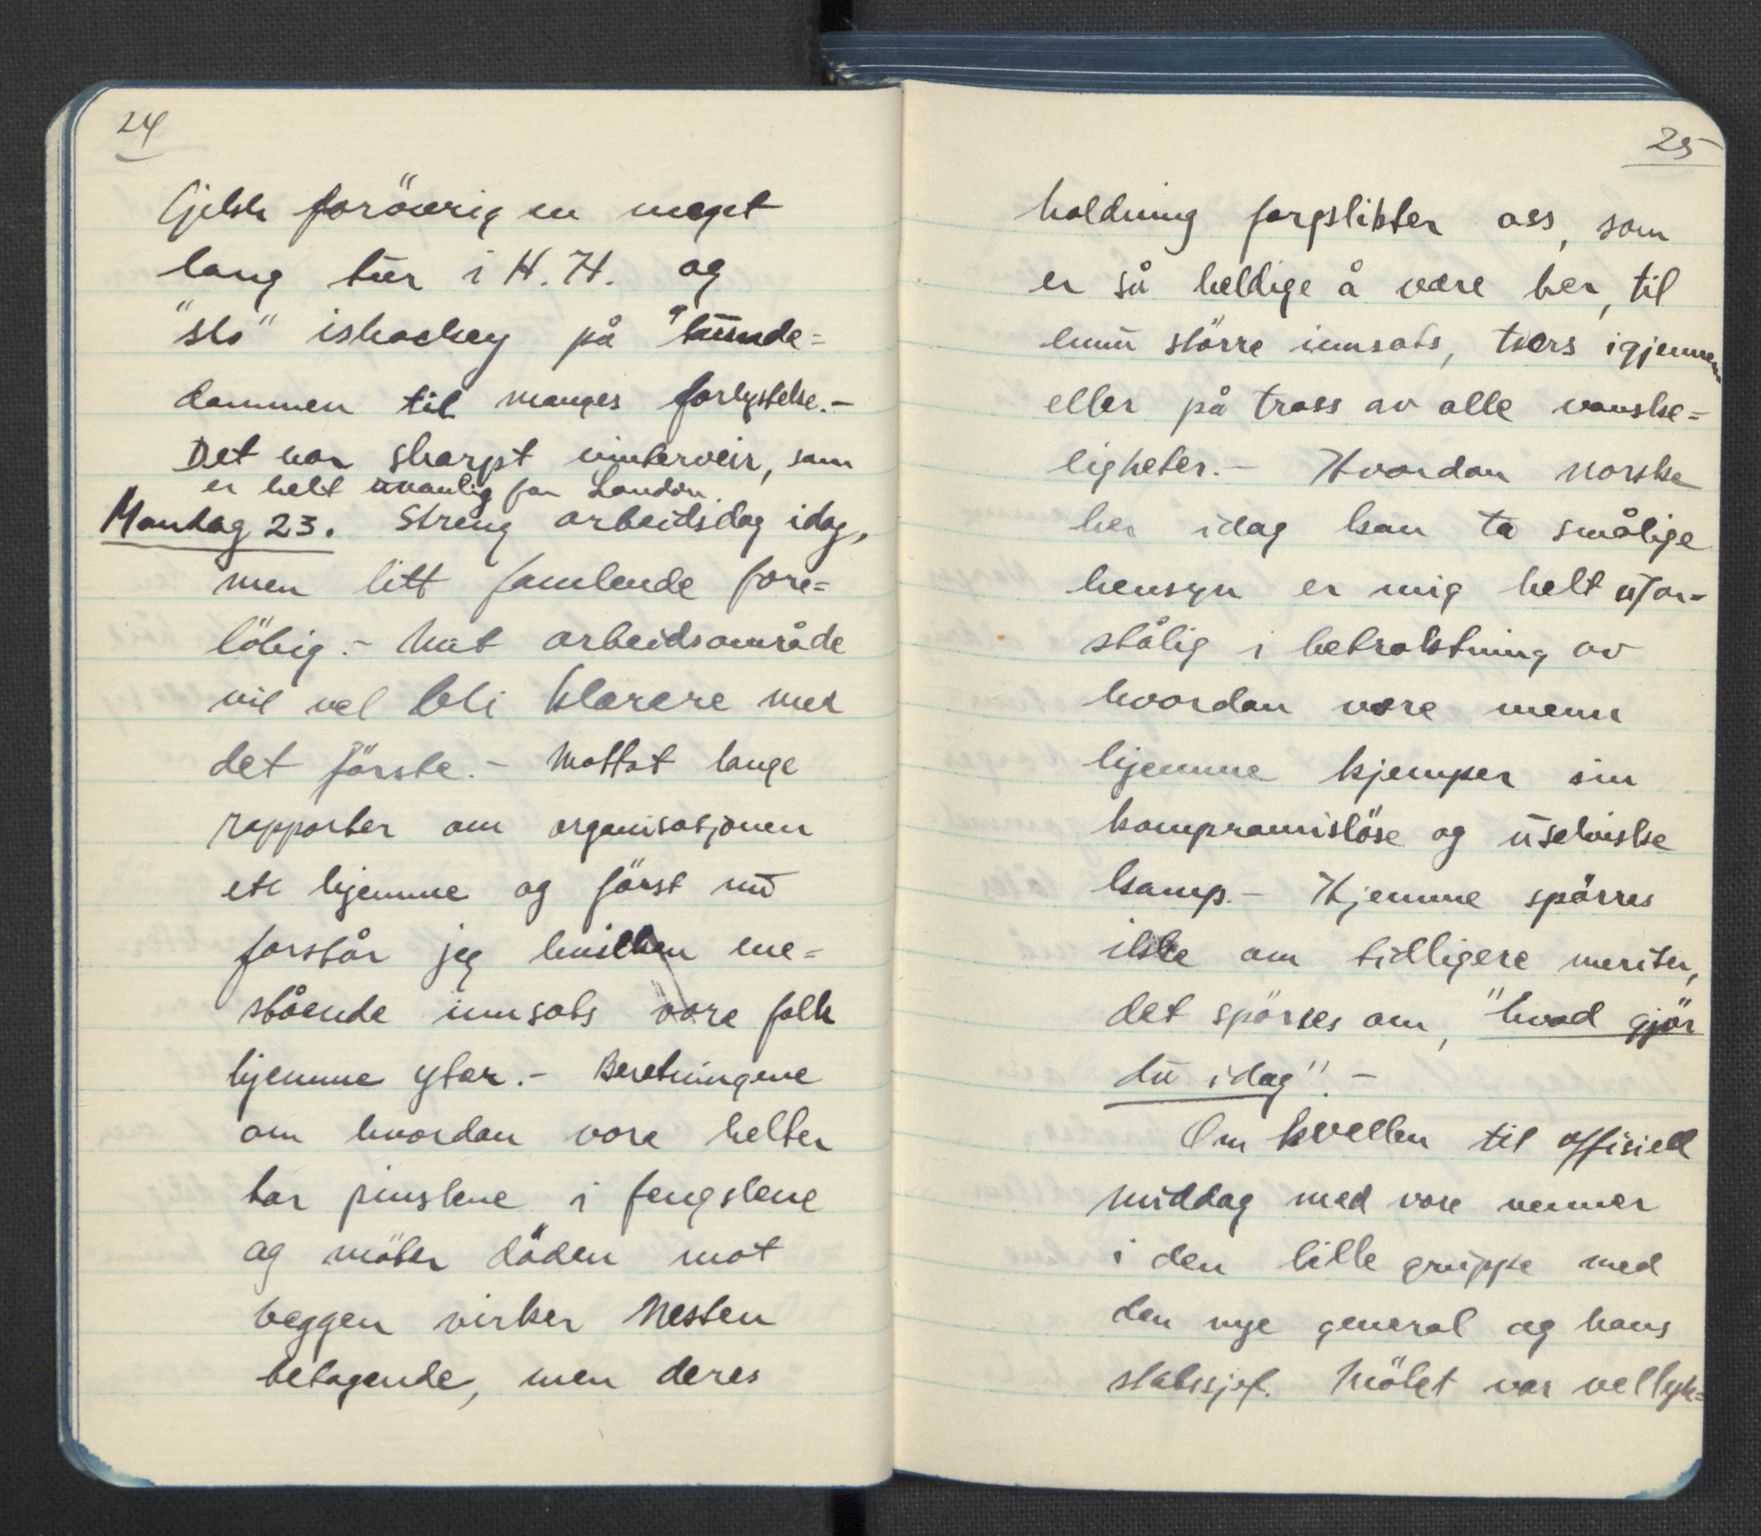 24
Gjekk forövrig en meget
lang tur i H.H. og
"slo" ishockey på "hunde=
dammen til manges forlystelse.-
Det var skarpt vinterveir, som
er helt uvanlig for London.
Mandag 23. Streng arbeidsdag idag,
men litt famlende fore=
löbig.- Mit arbeidsområde
vil vel bli klarere med
det förste.- Mottat lange
rapporter om organisasjonen
etc hjemme og först nu
forstår jeg hvilken ene=
stående innsats vore folk
hjemme yter.- Beretningene
om hvordan vore helter
tar pinslene i fengslene
og möter döden mot
veggen virker nesten
betagende, men deres
25
holdning forpslikter oss, som
er så heldige å være her, til
ennu större innsats, tvers igjennem
eller på tross av alle vanske=
ligheter.- Hvordan norske
her idag kan ta smålige
hensyn er mig helt ufor-
ståelig i betraktning av
hvordan vore menn
hjemme kjemper sin
kompromislöse og uselviske
kamp.- Hjemme spörres
ikke om tidligere meriter,
det spörres om, "hvad gjör
du idag".-
Om kvellen til offisiell
middag med vore venner
i den lille gruppe med
den nye general og hans
stabssjef. Mötet var vellyk=